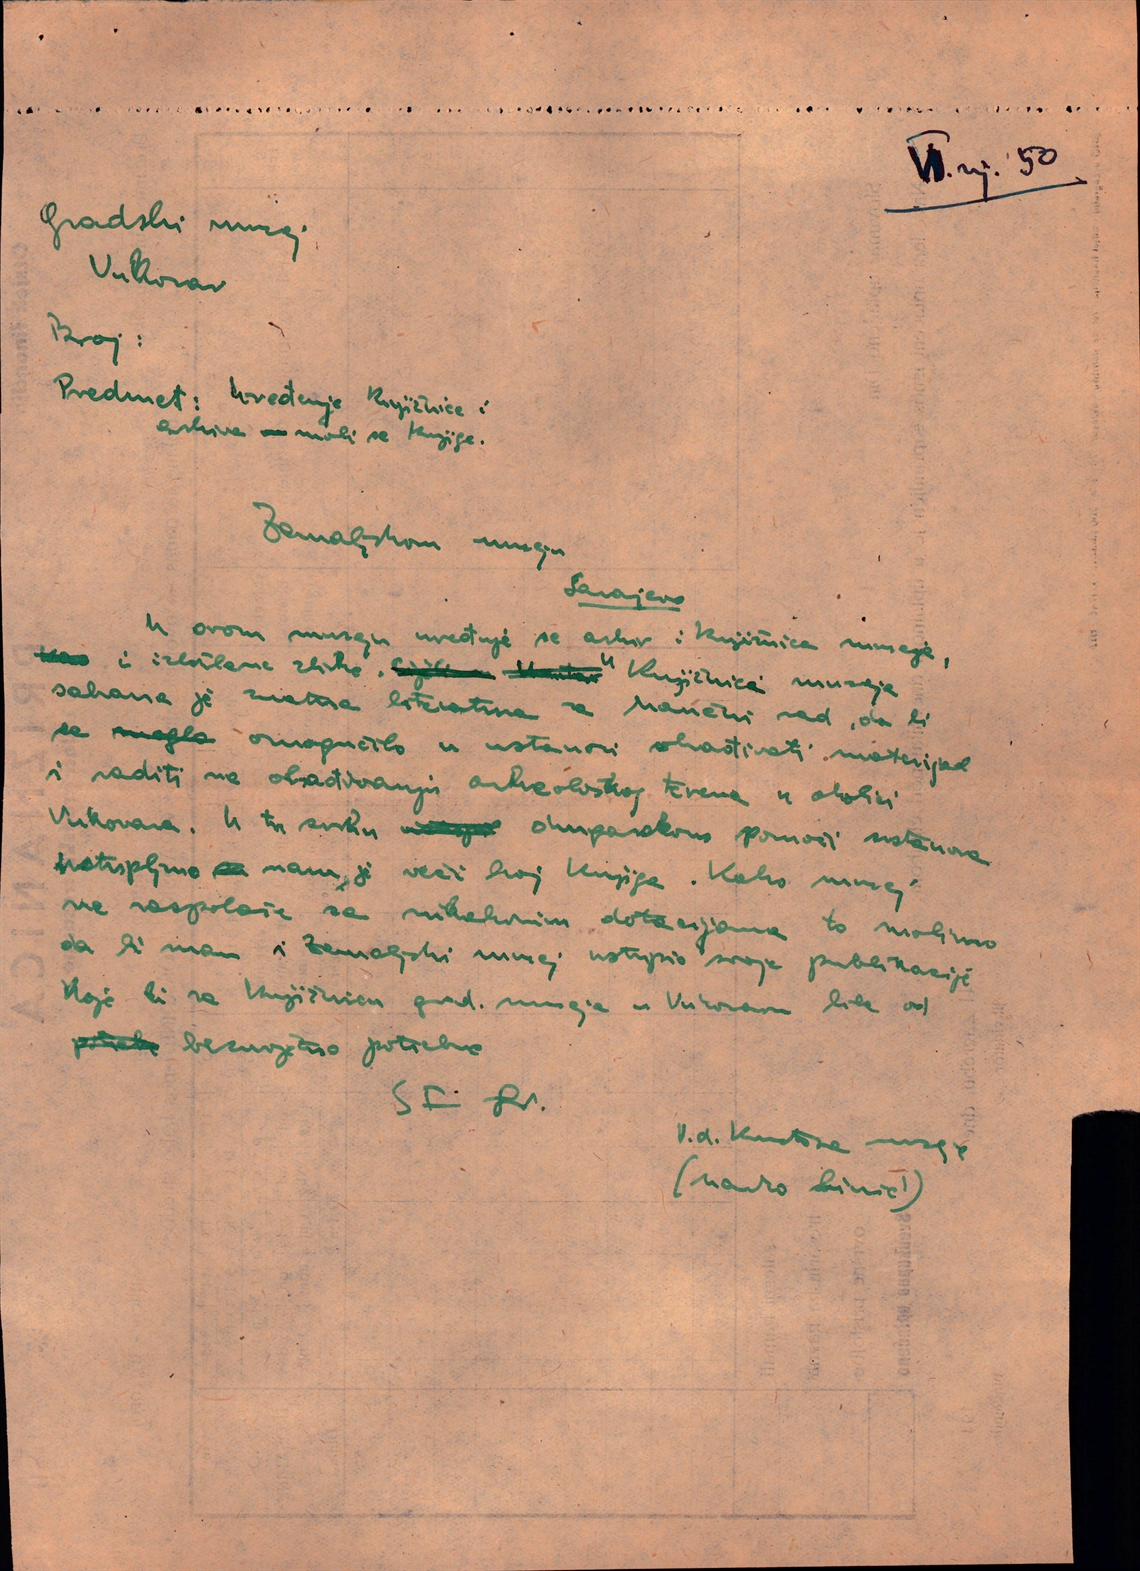 VI. '50
Gradski muzej
Vukovar
Broj:
Predmet: Uređenje knjižnice i
arhiva — moli se knjige.
Zemaljskom muzeju
Sarajevo
U ovom muzeju uređuje se arhiv i knjižnica muzeja,
i izložbene zbirke. U knjižnici muzeja
sabrana je znatna literatura za naučni rad, da bi
se omogućilo u ustanovi obađivati materijal
i raditi na obađivanju arheološkog terena u okolici
Vukovara. U tu svrhu pomoći ustanova
nam je veći broj knjiga. Kako muzej
ne raspolaže sa nikakovim dotacijama to molimo
da bi nam i Zemaljski muzej ustupio svoje publikacije
koje bi za knjižnicu grad. muzeja u Vukovaru bile od
potrebe
S F
V.d. kustosa muzeja